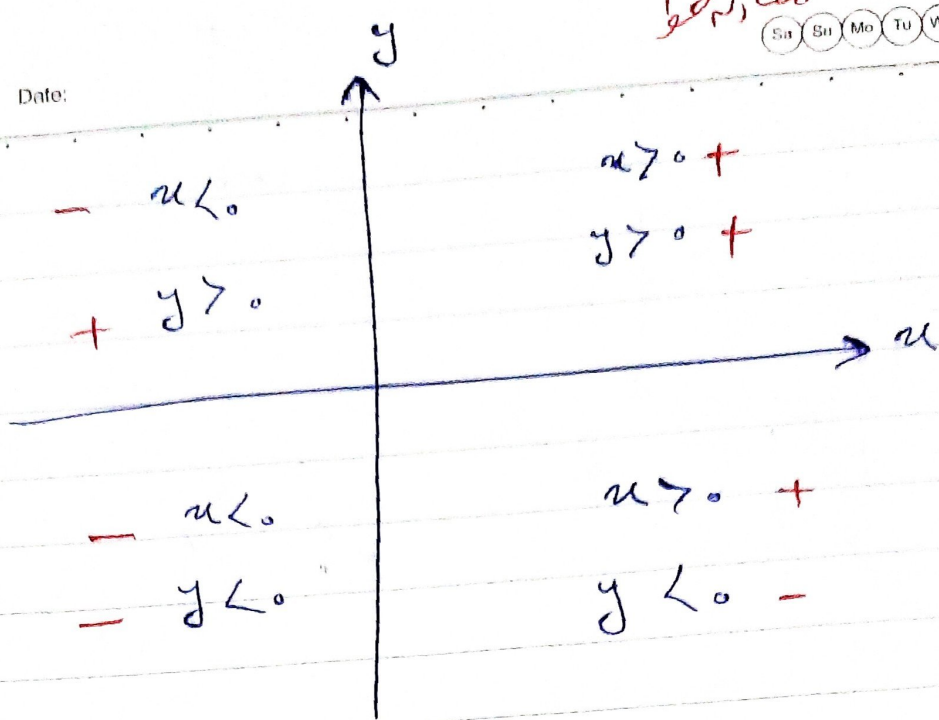 Sa Su Mo Tu W
y
Date:
x>0 +
- x<0
y>0 +
+ y>0
x
- x<0
x>0 +
- y<0
y<0 -